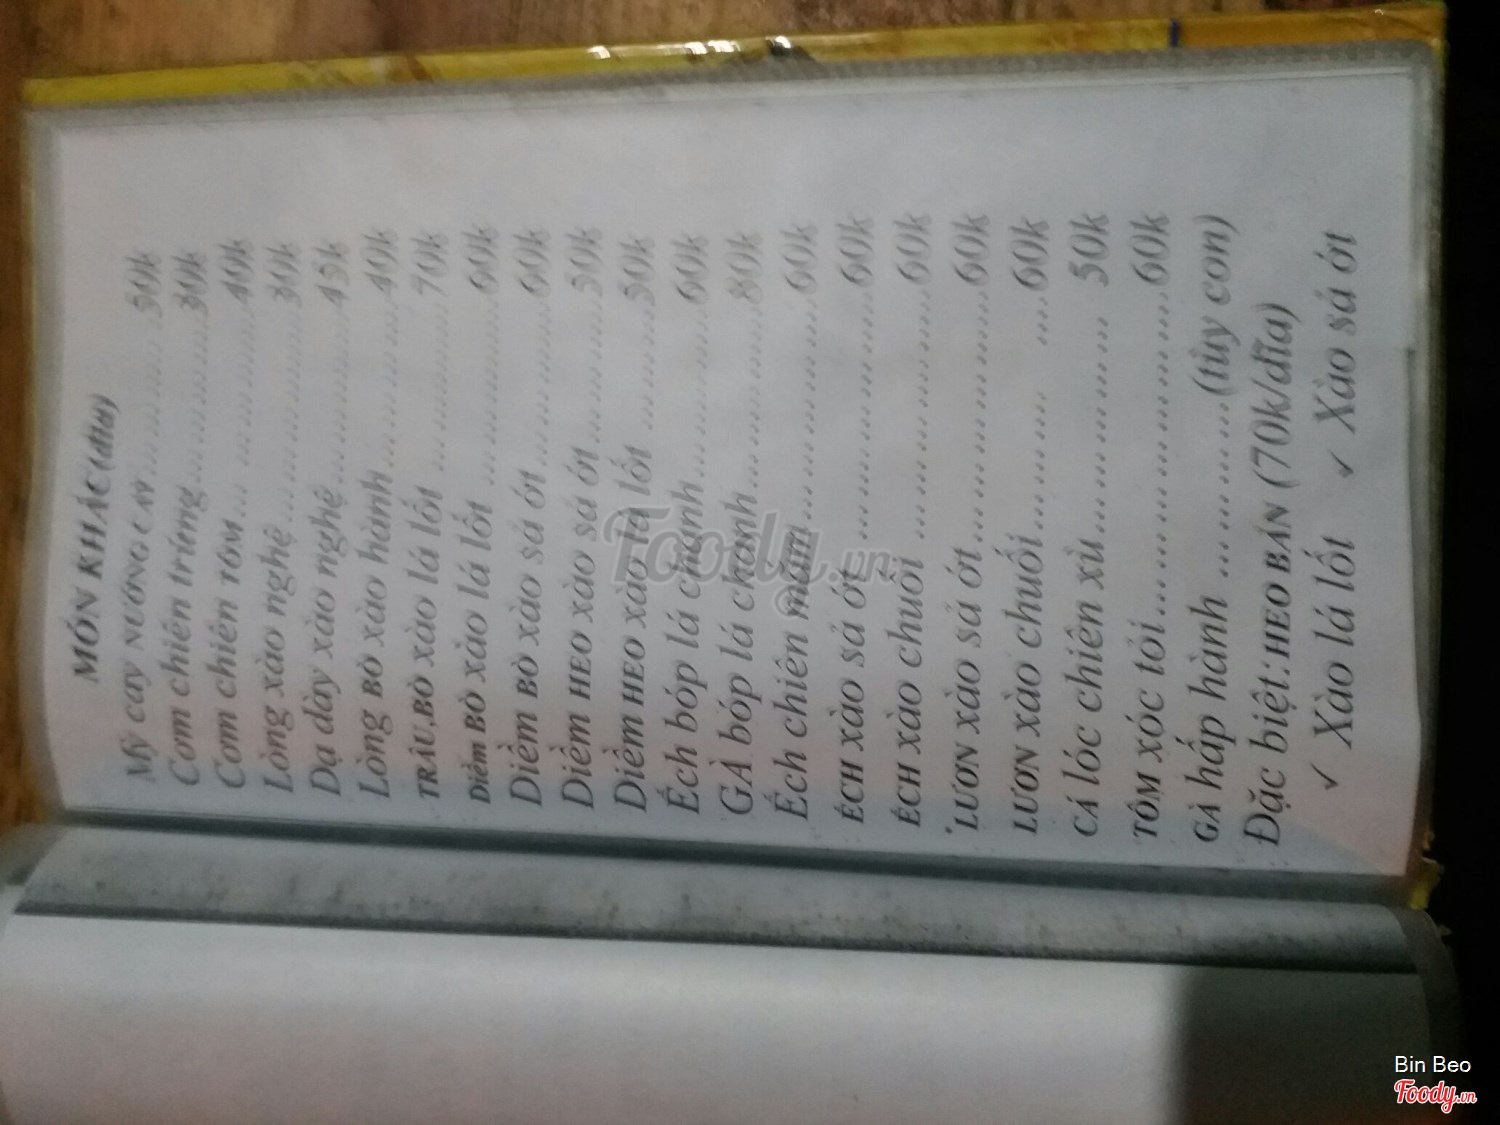 MÓN KHÁC(dĩa)
Mỳ cay NƯỚNG CAY............... 50k
Cơm chiên trứng..................30k
Cơm chiên TÔM... ...............40k
Lòng xào nghệ.....................30k
Dạ dày xào nghệ..................45k
Lòng BÒ xào hành..................40k
TRÂU,BÒ xào lá lốt ..................70k
Diềm BÒ xào lá lốt ..................60k
Diềm BÒ xào sả ớt..................60k
Diềm HEO xào sả ớt...............50k
Diềm HEO xào lá lốt ............50k
Ếch bóp lá chanh..................60k
GÀ bóp lá chanh..................80k
Ếch chiên mắm.....................60k
ẾCH xào sả ớt .....................60k
ẾCH xào chuối .....................60k
LƯƠN xào sả ớt.....................60k
LƯƠN xào chuối............ ....60k
CÁ lóc chiên xù.................. 50k
TÔM xóc tỏi........................60k
GÀ hấp hành ..................(tùy con)
Đặc biệt: HEO BẢN (70k/dĩa)
✓ Xào lá lốt ✓ Xào sả ớt
Foody.vn
Bin Beo
Foody.vn